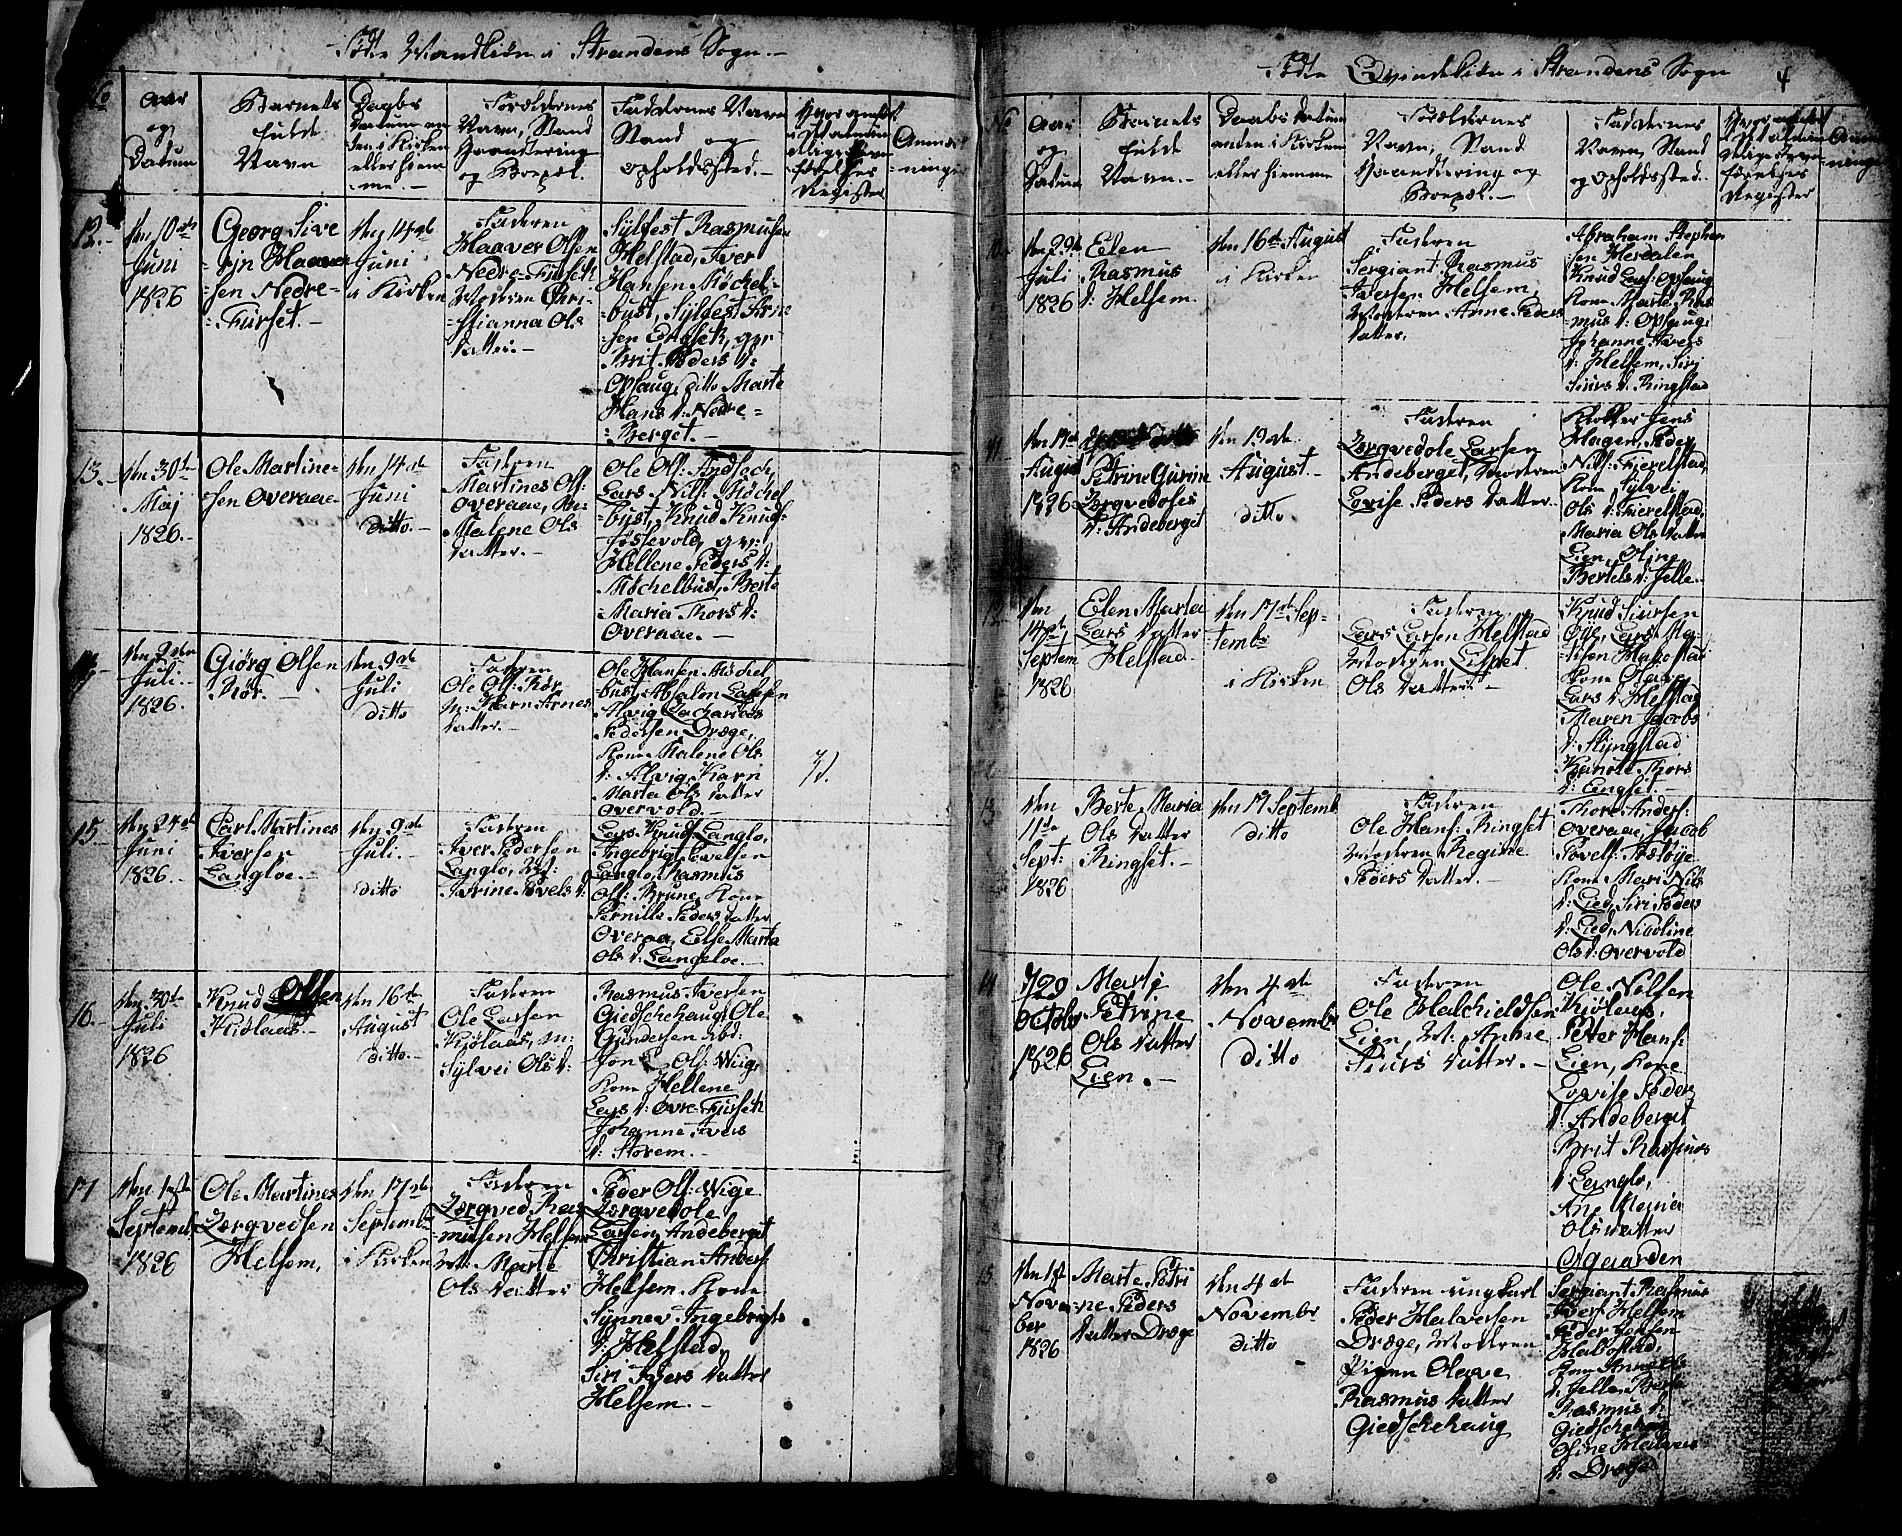 Fødte Mandkiøn i Strandens Sogn.-
No
Aar
og
Datum
Barnets
fulde
Navn
Daabs
Datum en-
ten i Kirken
eller hiem-
me.-
Forældrenes
Navn, Stand
Haandtering
og Boepæl.
Faddernes Navn
Stand og
opholdssted.-
Hvor anført
i Almin-
delige Jevn-
førelses
Register
Anmærk-
ninger
12.-
Den 10de
Juni
1826
Georg Sive-
rin Haaver-
sen Nedre-
=Furset.-
Den 14de
Juni
i Kirken
Faderen
Haaver Olsen
Nedre=Furseth
Moderen Chri-
stianna Ols
Datter.-
Syldest Rasmusen
Helstad, Iver
Hansen Møchel-
bust, Syldest Arne-
sen Engseth, gvr
Brit Peders D:
Opsaug, ditto Marte
Hans D: Nedre=
=Berget.-
13.-
Den 30te
Maj
1826.-
Ole Martine-
sen Overaae
Den 14de
Juni
ditto.-
Faderen
Martines Ols:
Overaae, M:
Malene Ols
Datter.-
Ole Ols:
Lars Nils: Møchel
=bust, Knud Knuds:
Fossevold, gvr:
Hellene Peders D:
Møchelbust, Berte
=Maria Thors D:
Overaae.-
14
Den 2den
Juli.-
1826.
Giørg Olsen
Rør.-
Den 9de
Juli
ditto
Faderen
Ole Ols: Rør
M: Karn Arnes
Datter.-
Ole Hansen Møchel
bust, Absalon Larsen
Alvig, Zacharias
Pedersen Dræge,
Kone Malene Ols
D: Alvig, Karn
Marta Ols Datter
Overvold.
15.-
Den 24de
Juni
1826.-
Carl Martines
Iversen
Langloe.-
Den 9de
Juli.-
ditto
Faderen
Iver Pedersen
Langlo, M:
Povels D:
Lars Knuds: Langlo,
Ingebrigt Povelsen
Langlo, Rasmus
Ols: Brune, Kone
Pernille Peders Datter
Overaa, Else Marta
Ols D. Langeloe.-
16.-
Den 30te
Juli
1826
Knud Olsen
Kiølaas.-
Den 16de
August
ditto.-
Faderen
Ole Larsen
Kiølaas, M:
Sylvei Ols D:
Rasmus Iversen
Giedschehaug, Ole
Gundersen ibd:
Jon Ols: Wiig,
Kone Hellene
Lars D: Øvre-Furseth
Johanne Ivers
D: Storem.-
17
Den 1ste
Septemb
1826
Ole Martines
Torgvedsen
Helsem,
Den 17de
Septemb
i Kirken
Faderen
Torgved Ras-
musen Helsem
M: Marte
Ols Datter
Peder Ols: Wige
Torgvedole
Larsen, Andeberget
Christian Anders:
Helsem. Kone
Synnev Ingebrigts
D: Helstad,
Siri Ivers Datter
Helsem.-
Fødte Qvindekiøn i Strandens Sogn
4
No
Aar
og
Datum
Barnets
fulde
Navn.-
Daabs Datum
enten i Kirken
eller hiemme
Forældrenes
Navn, Stand
Haandtering og
Boepæl.-
Faddernes
Navn, Stand
og Opholdssted.
Hvor anført
i Almin-
delige Jevn-
førelses
Register
Anmærk-
ninger
10.
Den 29de
Juli
1826
Elen
Rasmus
D: Helsem.
Den 16de August
i Kirken
Faderen
Sergiant Rasmus
Iversen Helsem,
Moderen Anne Peders
Datter.
Abraham Stephen
sen Herdalen
Knud Lars: Opsaug
Kone Marte Ras
mus D: Opsaug,
Johanne Ivers
D: Helsem, Siri
Siurs D: Ringstad
11
Den 17de
August
1826
Petrine Gurine
Torgvedoles
D: Andeberget
Den 19de
August.-
ditto
Faderen
Torgvedole Larsen
Andeberget, Moderen
Lovise Peders Datter.
Klokker Jens
Hagen, Peder
Nils: Fierelstad,
Kone Sylvei
Ols D: Fierelstad,
Maria Ols Datter
Lien, Oline
Bertels D: Jelle.-
12.
Den
14de
Septem
1826
Elen Marta
Lars Datter
Helstad.
Den 17de Sep-
temb:
i Kirken
Faderen
Lars Larsen Helstad
Moderen Lispet
Ols Datter.-
Knud Siursen
Øye, Lars Ma-
Habostad
Kone Olave
Lars D: Helstad
Maren Jacobs
D: Slyngstad
Thors
D: Engset.-
13
Den
11de
Sept:
1826
Berte Maria
Ols Datter
Ringset.-
Den 17 Septemb
ditto
Faderen
Ole Hans: Ringset
Moderen Regine
Peders Datter.-
Thore Anders:
Overaae, Jacob
Povels:
Kone Mari Nils
D: Lied, Siri Peders
D: Lied, Nicoline
Ols D: Overvold
14
d 29
Octobr
1826
Marte
Petrine
Ols Datter
Lien.-
Den 4de
Novembr
ditto
Faderen
Ole Halchieldsen
Lien, M: Anne
Siurs Datter.-
Ole Nilsen
Kiølaas,
Peter Hans:
Lien, Kone
Lovise Peders
D: Andeberget
Brit Rasmus
D: Langlo,
Ane Regina
Ols Datter
Opgaarden
15
Den 1ste
Novem-
ber
1826
Marte Petri
ne Peders
Datter Dræge
Den 4de
Novembr
ditto
Faderen ungkarl
Peder Halvorsen
Dræge, Moderen
Pigen Olave
Rasmus Datter
Giedschehaug
Sergiant Rasmus
Ivers: Helsem
Peder Jonsen
Habostad,
Kone Anne Ols
D: Jelle, Berte
Rasmus D:
Giedschehaug
Oline Halvors
D: Dræge